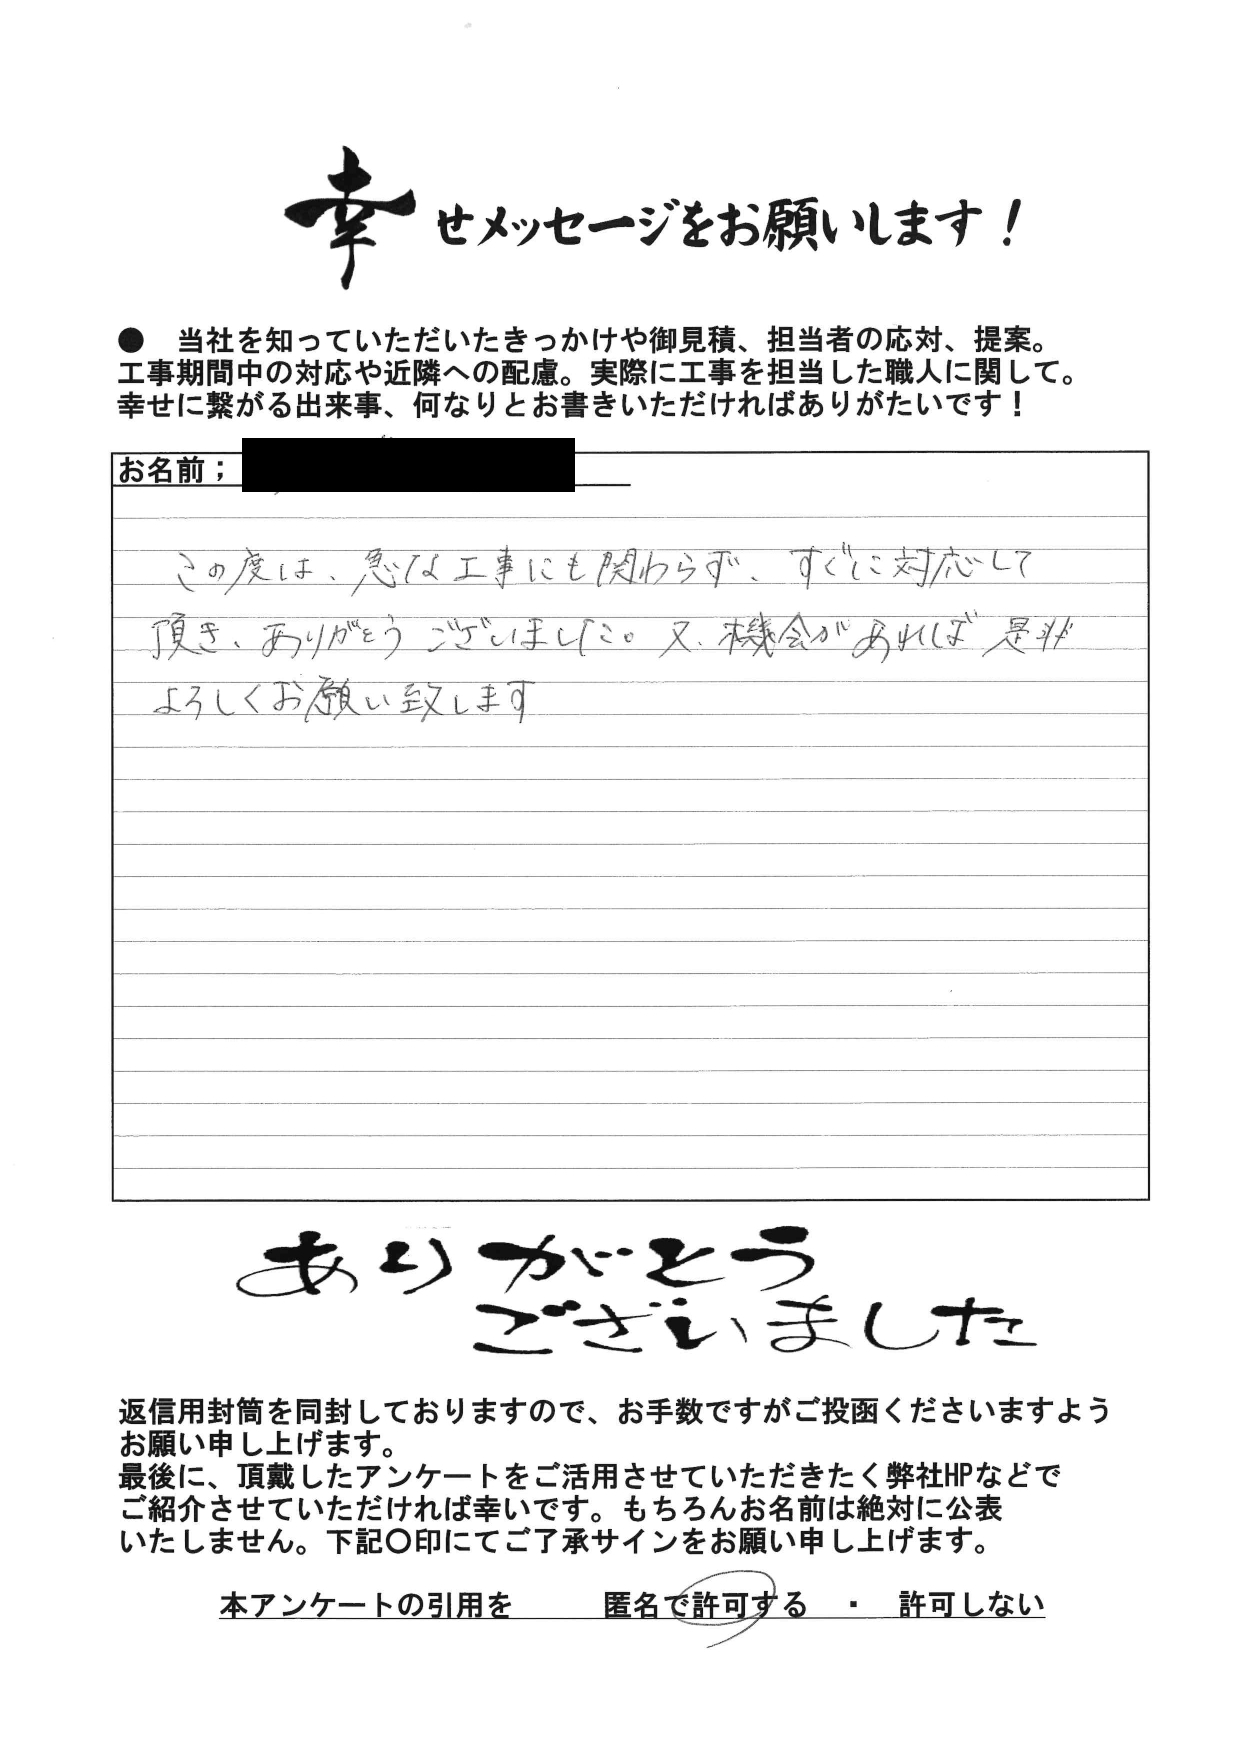 幸せメッセージをお願いします！
●　当社を知っていただいたきっかけや御見積、担当者の応対、提案。
工事期間中の対応や近隣への配慮。実際に工事を担当した職人に関して。
幸せに繋がる出来事、何なりとお書きいただければありがたいです！
お名前；
この度は、急な工事にも関わらず、すぐに対応して
頂き、ありがとうございました。又、機会があれば是非
よろしくお願い致します
ありがとう
ございました
返信用封筒を同封しておりますので、お手数ですがご投函くださいますよう
お願い申し上げます。
最後に、頂戴したアンケートをご活用させていただきたく弊社HPなどで
ご紹介させていただければ幸いです。もちろんお名前は絶対に公表
いたしません。下記〇印にてご了承サインをお願い申し上げます。
本アンケートの引用を　　匿名で許可する　・　許可しない